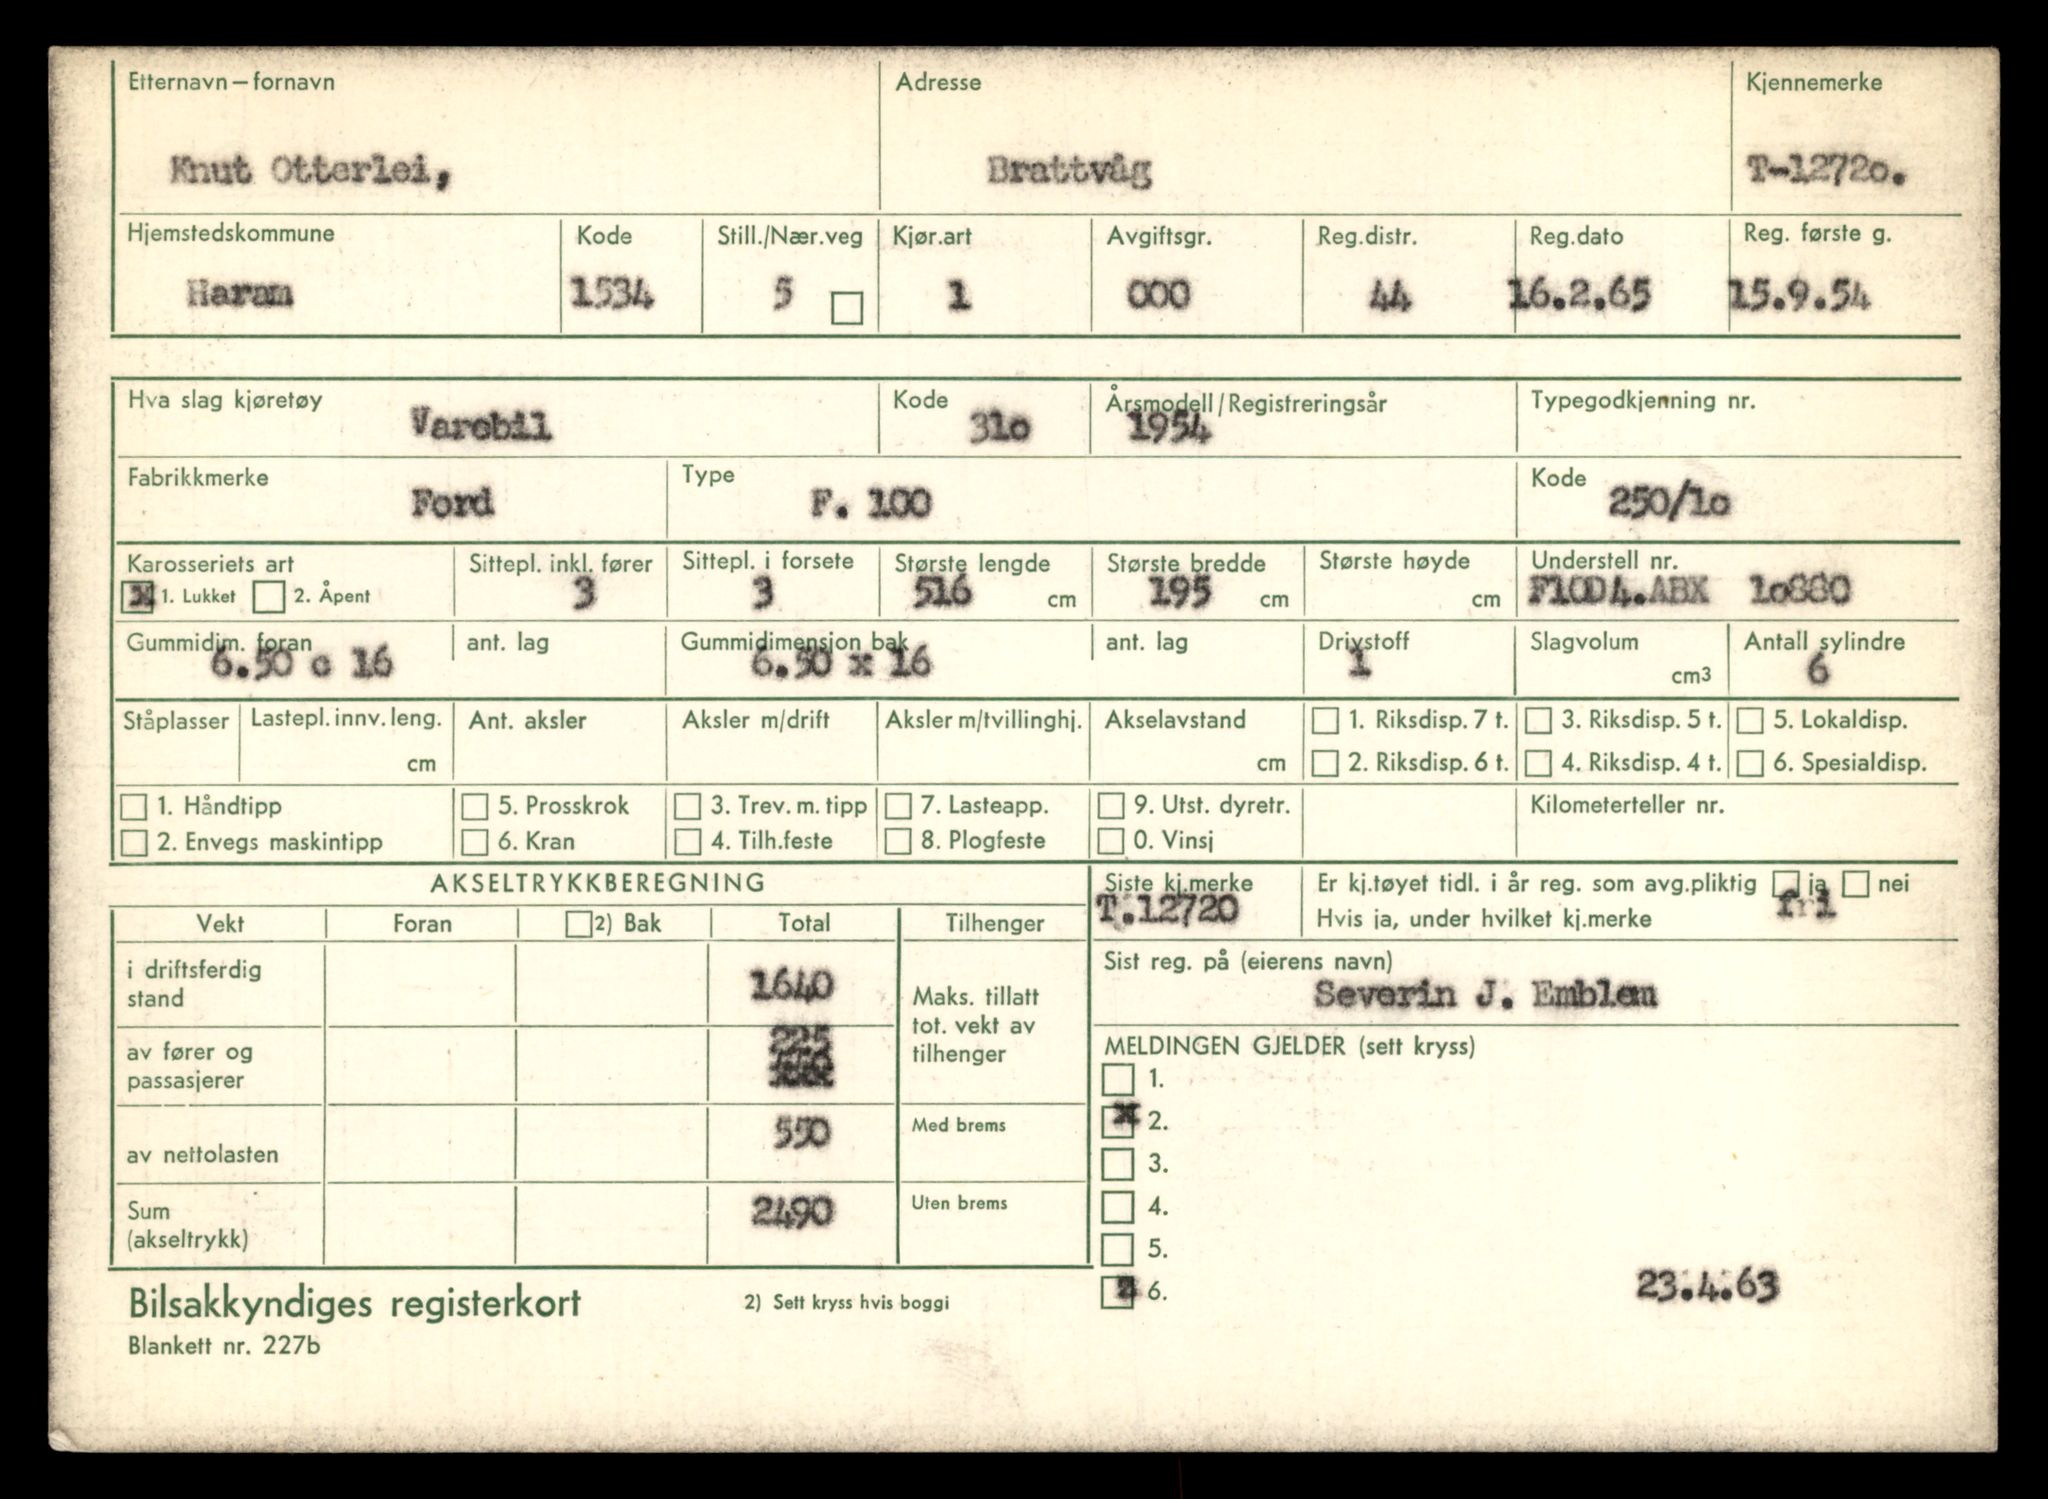 Etternavn – fornavn Adresse Kjennemerke
Knut Otterlei, Brattvåg T-1272o.
Hjemstedskommune Kode Still./Nær.veg Kjør.art Avgiftsgr. Reg.distr. Reg.dato Reg. første g.
Haram 1534 5 1 000 44 16.2.65 15.9.54
Hva slag kjøretøy Kode Årsmodell/Registreringsår Typegodkjenning nr.
Varebil 31o 1954
Fabrikkmerke Type Kode
Ford F. 100 250/1o
Karosseriets art Sittepl. inkl. fører Sittepl. i forsete Største lengde Største bredde Største høyde Understell nr.
x 1. Lukket 2. Åpent 3 3 516 cm 195 cm cm F10D4.ABX 1o880
Gummidim. foran ant. lag Gummidimensjon bak ant. lag Drivstoff Slagvolum Antall sylindre
6.50 c 16 6.50 x 16 1 cm3 6
Ståplasser Lastepl. innv. leng. Ant. aksler Aksler m/drift Aksler m/tvillinghj. Akselavstand 1. Riksdisp. 7 t. 3. Riksdisp. 5 t. 5. Lokaldisp.
cm cm 2. Riksdisp. 6 t. 4. Riksdisp. 4 t. 6. Spesialdisp.
1. Håndtipp 5. Prosskrok 3. Trev. m. tipp 7. Lasteapp. 9. Utst. dyretr. Kilometerteller nr.
2. Envegs maskintipp 6. Kran 4. Tilh.feste 8. Plogfeste 0. Vinsj
AKSELTRYKKBEREGNING
Vekt Foran 2) Bak Total Tilhenger
i driftsferdig stand 1640
Maks. tillatt tot. vekt av tilhenger
av fører og passasjerer 225
av nettolasten 550 Med brems
Sum (akseltrykk) 2490 Uten brems
Siste kj.merke Er kj.tøyet tidl. i år reg. som avg.pliktig ja nei
T.12720 Hvis ja, under hvilket kj.merke fri
Sist reg. på (eierens navn)
Severin J. Emblem
MELDINGEN GJELDER (sett kryss)
1.
x 2.
3.
4.
5.
6.
23.4.63
Bilsakkyndiges registerkort 2) Sett kryss hvis boggi
Blankett nr. 227b